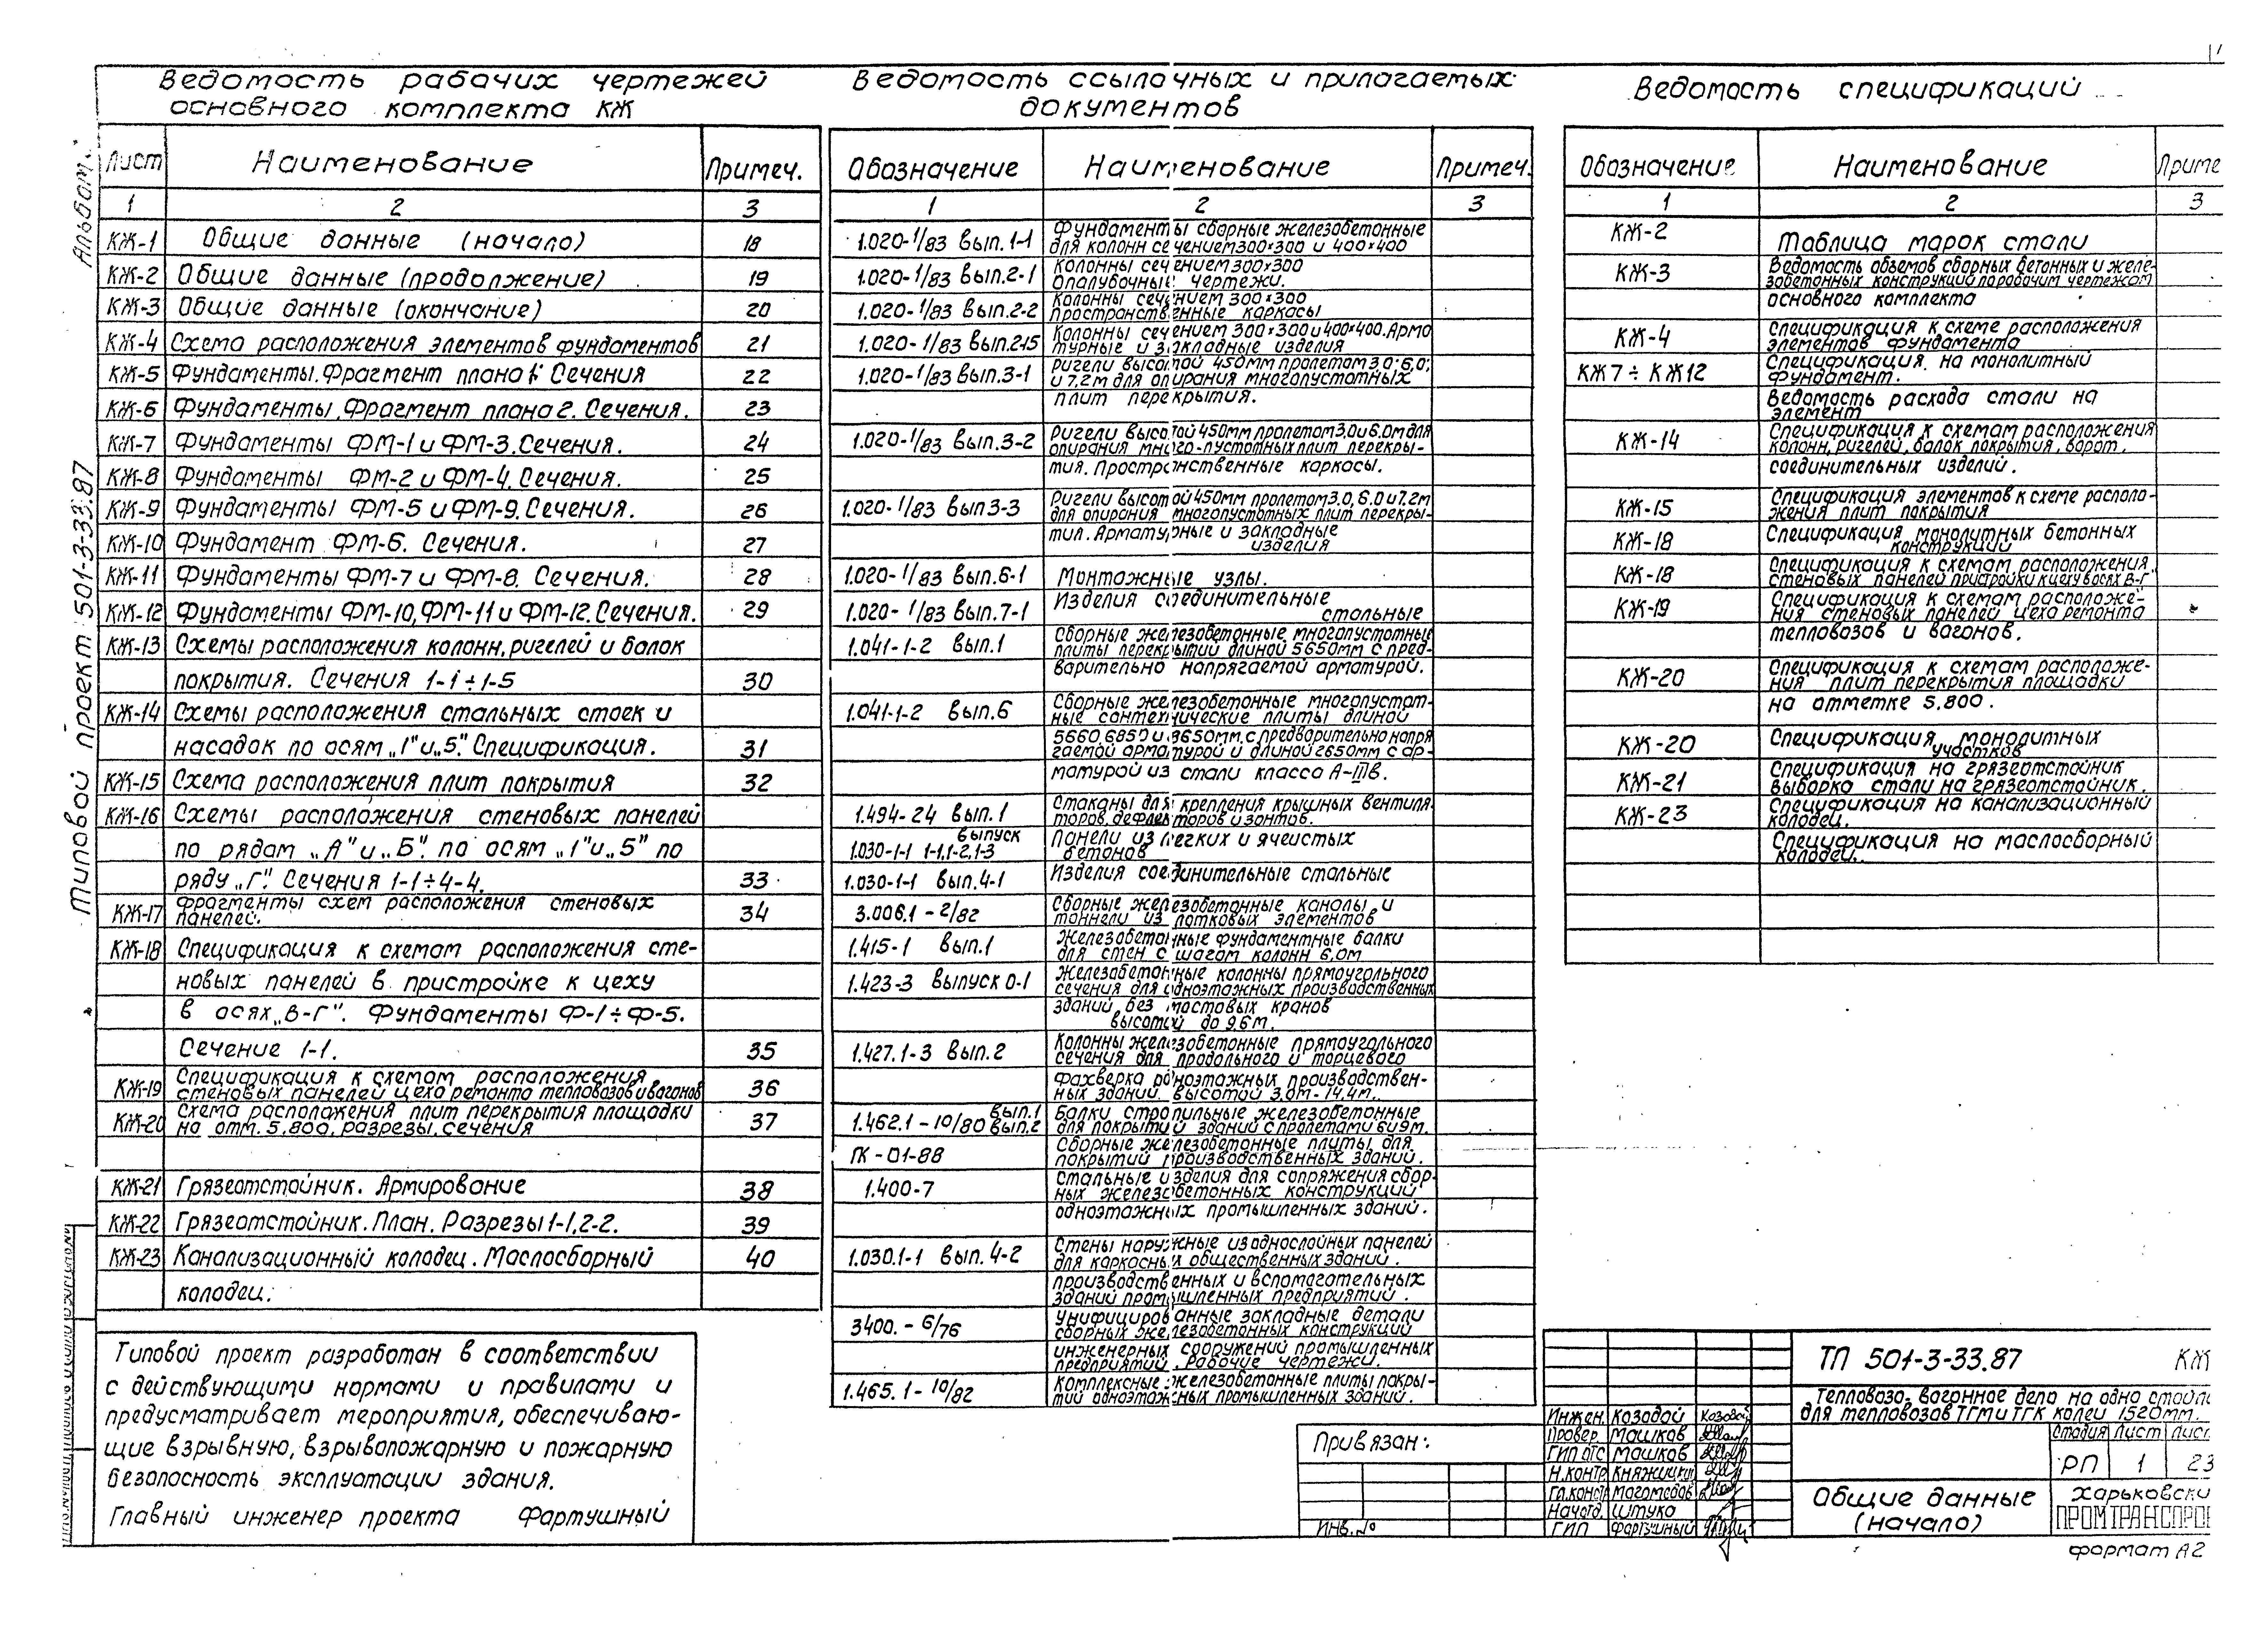 Ведомость рабочих чертежей
основного комплекта КЖ
Лист Наименование Примеч.
1 2 3
КЖ-1 Общие данные (начало) 18
КЖ-2 Общие данные (продолжение) 19
КЖ-3 Общие данные (окончание) 20
КЖ-4 Схема расположения элементов фундаментов 21
КЖ-5 Фундаменты. Фрагмент плана 1. Сечения 22
КЖ-6 Фундаменты. Фрагмент плана 2. Сечения. 23
КЖ-7 Фундаменты ФМ-1 и ФМ-3. Сечения. 24
КЖ-8 Фундаменты ФМ-2 и ФМ-4. Сечения. 25
КЖ-9 Фундаменты ФМ-5 и ФМ-9. Сечения. 26
КЖ-10 Фундамент ФМ-6. Сечения. 27
КЖ-11 Фундаменты ФМ-7 и ФМ-8. Сечения. 28
КЖ-12 Фундаменты ФМ-10, ФМ-11 и ФМ-12. Сечения. 29
КЖ-13 Схемы расположения колонн, ригелей и балок
покрытия. Сечения 1-1÷1-5 30
КЖ-14 Схемы расположения стальных стоек и
насадок по осям „1" и „5". Спецификация. 31
КЖ-15 Схема расположения плит покрытия 32
КЖ-16 Схемы расположения стеновых панелей
по рядам „А" и „Б". по осям „1" и „5" по
ряду „Г". Сечения 1-1÷4-4. 33
КЖ-17 Фрагменты схем расположения стеновых
панелей. 34
КЖ-18 Спецификация к схемам расположения сте-
новых панелей в пристройке к цеху
в осях „В-Г". Фундаменты Ф-1÷Ф-5.
Сечение 1-1. 35
КЖ-19 Спецификация к схемам расположения
стеновых панелей цеха ремонта тепловозов и вагонов 36
КЖ-20 Схема расположения плит перекрытия площадки
на отм. 5.800. разрезы, сечения 37
КЖ-21 Грязеотстойник. Армирование 38
КЖ-22 Грязеотстойник. План. Разрезы 1-1, 2-2. 39
КЖ-23 Канализационный колодец. Маслосборный 40
колодец.
Типовой проект разработан в соответствии
с действующими нормами и правилами и
предусматривает мероприятия, обеспечиваю-
щие взрывную, взрывопожарную и пожарную
безопасность эксплуатации здания.
Главный инженер проекта Фартушный
Альбом
Типовой проект 501-3-33.87
Ведомость ссылочных и прилагаемых
документов
Обозначение Наименование Примеч.
1 2 3
1.020-1/83 вып.1-1 Фундаменты сборные железобетонные
для колонн сечением 300×300 и 400×400
1.020-1/83 вып.2-1 Колонны сечением 300×300
Опалубочные чертежи.
1.020-1/83 вып.2-2 Колонны сечением 300×300
пространственные каркасы
1.020-1/83 вып.2-15 Колонны сечением 300×300 и 400×400. Арма
турные и закладные изделия
1.020-1/83 вып.3-1 Ригели высотой 450мм пролетом 3.0; 6.0;
и 7.2м для опирания многопустотных
плит перекрытия.
1.020-1/83 вып.3-2 Ригели высотой 450мм пролетом 3.0 и 6.0м для
опирания много-пустотных плит перекры-
тия. Пространственные каркасы.
1.020-1/83 вып 3-3 Ригели высотой 450мм пролетом 3.0, 6.0 и 7.2м
для опирания многопустотных плит перекры-
тия. Арматурные и закладные
изделия
1.020-1/83 вып.6-1 Монтажные узлы.
1.020-1/83 вып.7-1 Изделия соединительные
стальные
1.041-1-2 вып.1 Сборные железобетонные многопустотные
плиты перекрытий длиной 5650мм с пред-
варительно напрягаемой арматурой.
1.041-1-2 вып.6 Сборные железобетонные многопустот-
ные сантехнические плиты длиной
5660, 6850 и 8650мм. с предварительно напря
гаемой арматурой и длиной 2650мм с ар-
матурой из стали класса А-IIIв.
1.494-24 вып.1 Стаканы для крепления крышных вентиля
торов, дефлекторов и зонтов.
выпуск
1.030-1-1 1-1,1-2,1-3 Панели из легких и ячеистых
бетонов
1.030-1-1 вып.4-1 Изделия соединительные стальные
3.006.1-2/82 Сборные железобетонные каналы и
тоннели из лотковых элементов
1.415-1 вып.1 Железобетонные фундаментные балки
для стен с шагом колонн 6,0м
1.423-3 выпуск 0-1 Железобетонные колонны прямоугольного
сечения для одноэтажных производственных
зданий без мостовых кранов
высотой до 9.6м.
1.427.1-3 вып.2 Колонны железобетонные прямоугольного
сечения для продольного и торцевого
фахверка одноэтажных производствен-
ных зданий. высотой 3,0м-14,4м.
1.462.1-10/80 вып.1 вып.2 Балки стропильные железобетонные
для покрытий зданий с пролетами 6 и 9м.
ПК-01-88 Сборные железобетонные плиты для
покрытий производственных зданий.
1.400-7 Стальные изделия для сопряжения сбор-
ных железобетонных конструкций
одноэтажных промышленных зданий.
1.030.1-1 вып. 4-2 Стены наружные из однослойных панелей
для каркасных общественных зданий.
производственных и вспомогательных
зданий промышленных предприятий.
3400.-6/76 Унифицированные закладные детали
сборных железобетонных конструкций
инженерных сооружений промышленных
предприятий. Рабочие чертежи.
1.465.1-10/82 Комплексные железобетонные плиты покры-
тий одноэтажных промышленных зданий.
Ведомость спецификаций
Обозначение Наименование Приме
1 2 3
КЖ-2 Таблица марок стали
КЖ-3 Ведомость объемов сборных бетонных и желе-
зобетонных конструкций по рабочим чертежам
основного комплекта
КЖ-4 Спецификация к схеме расположения
элементов фундамента
КЖ7÷КЖ12 Спецификация. на монолитный
фундамент.
Ведомость расхода стали на
элемент
КЖ-14 Спецификация к схемам расположения
колонн, ригелей, балок покрытия, ворот.
соединительных изделий.
КЖ-15 Спецификация элементов к схеме располо-
жения плит покрытия
КЖ-18 Спецификация монолитных бетонных
конструкций
КЖ-18 Спецификация к схемам расположения
стеновых панелей пристройки к цеху в осях В-Г
КЖ-19 Спецификация к схемам расположе-
ния стеновых панелей цеха ремонта
тепловозов и вагонов.
КЖ-20 Спецификация к схемам расположе-
ния плит перекрытия площадки
на отметке 5.800.
КЖ-20 Спецификация монолитных
участков
КЖ-21 Спецификация на грязеотстойник
выборка стали на грязеотстойник.
КЖ-23 Спецификация на канализационный
колодец.
Спецификация на маслосборный
колодец.
Привязан:
Инв.№
Инжен. Козодой
Провер. Машков
ГИП ОТС Машков
Н.контр Княжицкий
Гл.констр Магомедов
Нач.отд. Штуко
ГИП Фартушный
ТП 501-3-33.87 КЖ
Тепловозо-вагонное депо на одно стойл
для тепловозов ТГМ и ТГК колеи 1520мм.
Стадия Лист Лист
РП 1 23
Общие данные
(начало)
Харьковски
ПРОМТРАНСПРО
формат А2